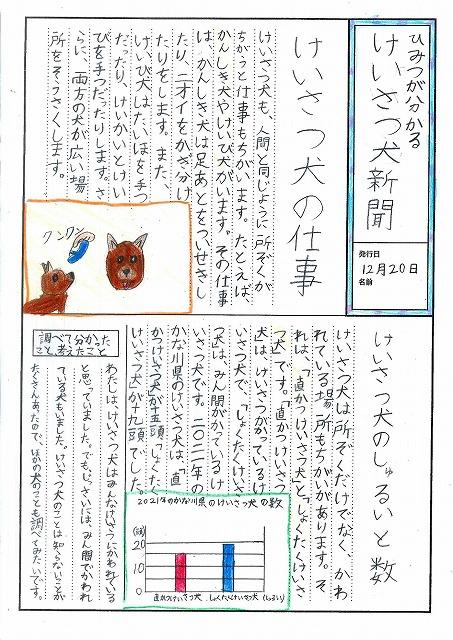 ひみつが分かる
けいさつ犬新聞
発行日
12月20日
名前
けいさつ犬の仕事
けいさつ犬も、人間と同じように所ぞくが
ちがうと仕事もちがいます。たとえば、
かんしき犬やけいび犬がいます。その仕事
は、かんしき犬は足あとをついせきし
たり、ニオイをかぎ分け
たりをします。また、
けいび犬はたいほを手つ
だったり、けいかいとけい
びを手つだったりします。さ
らに、両方の犬が広い場
所をそうさくします。
クンクン
けいさつ犬のしゅるいと数
けいさつ犬は所ぞくだけでなく、かわ
れている場所もちがいがあります。そ
れは、「直かつけいさつ犬」と「しょくたくけいさ
つ犬」です。「直かつけいさつ
犬」は、けいさつがかっているけ
いさつ犬で、「しょくたくけいさ
つ犬」は、みん間がかっているけ
いさつ犬です。二〇二一年の
かな川県のけいさつ犬は、「直
かつけいさつ犬」が十五頭、「しょくたく
けいさつ犬」が十九頭でした。
2021年のかな川県のけいさつ犬の数
(頭)
20
10
0
直かつけいさつ犬 しょくたくけいさつ犬 (しゅるい)
調べて分かった
こと、考えたこと
わたしはけいさつ犬はみんなけいさつにかわれている
と思っていました。でも、じっさいには、みん間でかわれ
ている犬もいました。けいさつ犬のことは知らないことが
たくさんあったので、ほかの犬のことも調べてみたいです。